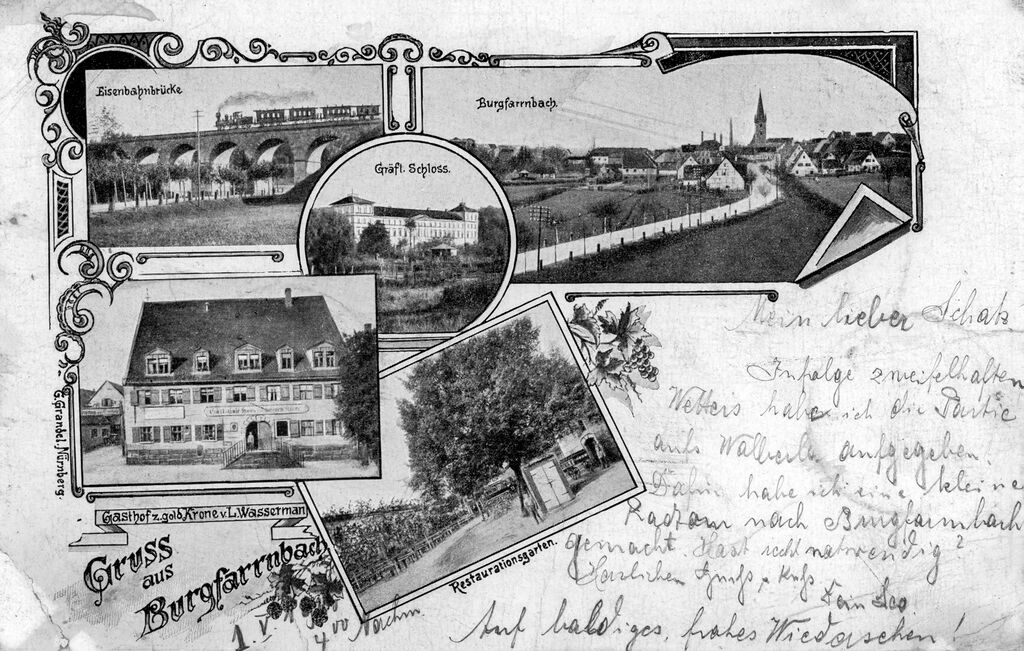 Eisenbahnbrücke
Burgfarrnbach.
Gräfl. Schloss.
G. Grandel, Nürnberg.
Gasthof z. gold. Krone v. L. Wasserman
Restaurationsgarten.
Gruss
aus
Burgfarrnbach
Mein lieber Schatz
Infolge zweifelhaften
Wetters habe ich die Partie
aufs aufgegeben.
Dafür habe ich eine kleine
Radtour nach Burgfarrnbach
gemacht. Hast recht notwendig?
Herzlichen Gruß u. Kuß
Dein Leo
Auf baldiges, frohes Wiedersehen!
1. V
4 00 Nachm